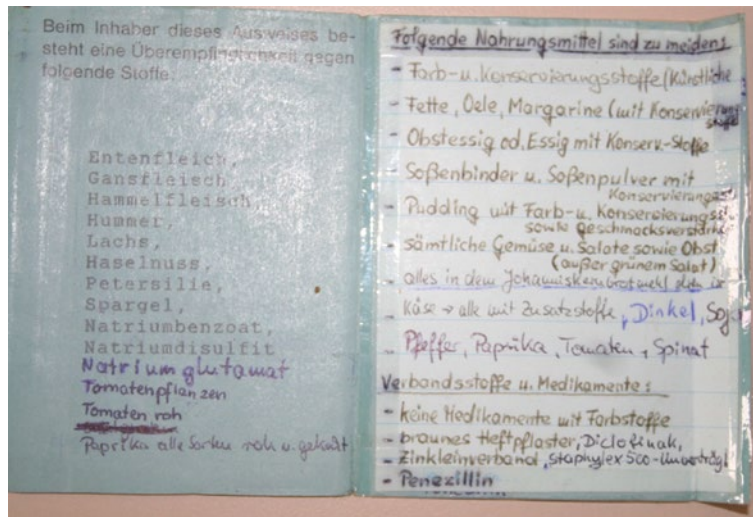 Beim Inhaber dieses Ausweises be-
steht eine Überempfindlichkeit gegen
folgende Stoffe:
Entenfleich,
Gansfleisch
Hammelfleisch,
Hummer,
Lachs,
Haselnuss,
Petersilie,
Spargel,
Natriumbenzoat,
Natriumdisulfit
Natriumglutamat
Tomatenpflanzen
Tomaten roh
Paprika alle Sorten roh u. gekocht
Folgende Nahrungsmittel sind zu meiden:
- Farb- u. Konservierungsstoffe (künstliche
- Fette, Oele, Margarine (mit Konservierung
stoffe
- Obstessig od. Essig mit Konserv.-Stoffe
- Soßenbinder u. Soßenpulver mit
Konservierungsst
- Pudding mit Farb- u. Konservierungsst
sowie Geschmacksverstärker
- sämtliche Gemüse u. Salate sowie Obst
(außer grünem Salat)
- alles in dem Johanniskernbrotmehl drin is
- Käse → alle mit Zusatzstoffe, Dinkel, Soja
- Pfeffer, Paprika, Tomaten, Spinat
Verbandsstoffe u. Medikamente:
- keine Medikamente mit Farbstoffe
- braunes Heftpflaster, Diclofinak,
- Zinkleinverband, Staphylex 500-Unverträgl
- Penezillin